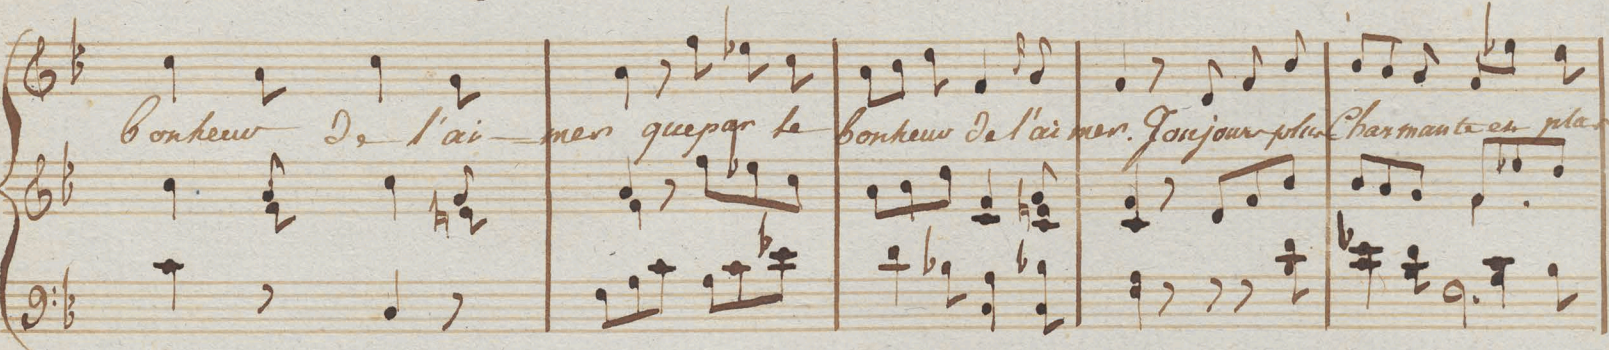 bonheur De l'ai-mer que par le bonheur de l'ai mer. Toujours plus Charmante en plai